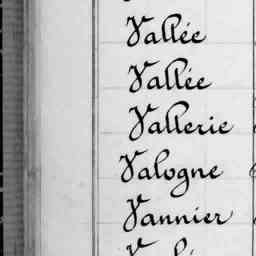 Vallée
Vallée
Vallerie
Valogne
Vannier